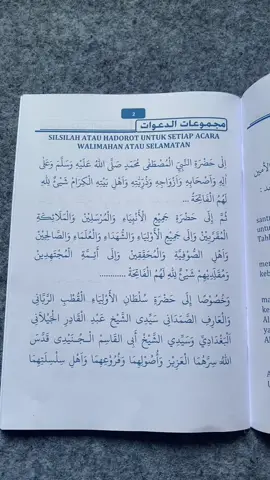 2
مجموعات الدعوات
SILSILAH ATAU HADOROT UNTUK SETIAP ACARA
WALIMAHAN ATAU SELAMATAN
اِلَى حَضْرَةِ النَّبِيِّ الْمُصْطَفَى مُحَمَّدٍ صَلَّى اللهُ عَلَيْهِ وَسَلَّمَ وَعَلَى
اٰلِهِ وَاَصْحَابِهِ وَاَزْوَاجِهِ وَذُرِّيَّتِهِ وَاَهْلِ بَيْتِهِ الْكِرَامِ شَيْئٌ لِلّٰهِ
لَهُمُ الْفَاتِحَةُ ...
ثُمَّ اِلَى حَضْرَةِ جَمِيْعِ الْاَنْبِيَاءِ وَالْمُرْسَلِيْنَ وَالْمَلَائِكَةِ
الْمُقَرَّبِيْنَ وَاِلَى جَمِيْعِ الْاَوْلِيَاءِ وَالشُّهَدَاءِ وَالْعُلَمَاءِ وَالصَّالِحِيْنَ
وَاَهْلِ الصُّوْفِيَّةِ وَالْمُحَقِّقِيْنَ وَاِلَى اَئِمَّةِ الْمُجْتَهِدِيْنَ
وَمُقَلِّدِيْهِمْ شَيْئٌ لِلّٰهِ لَهُمُ الْفَاتِحَةُ ............
وَخُصُوْصًا اِلَى حَضْرَةِ سُلْطَانِ الْاَوْلِيَاءِ الْقُطْبِ الرَّبَّانِي
وَالْعَارِفِ الصَّمَدَانِي سَيِّدِى الشَّيْخِ عَبْدِ الْقَادِرِ الْجَيْلَانِي
اَلْبَغْدَادِيْ وَسَيِّدِي الشَّيْخِ أَبِى الْقَاسِمِ الْجُنَيْدِى قَدَّسَ
اللهُ سِرَّهُمَا الْعَزِيْزَ وَاُصُوْلِهِمَا وَفُرُوْعِهِمَا وَاَهْلِ سِلْسِلَتِهِمَا